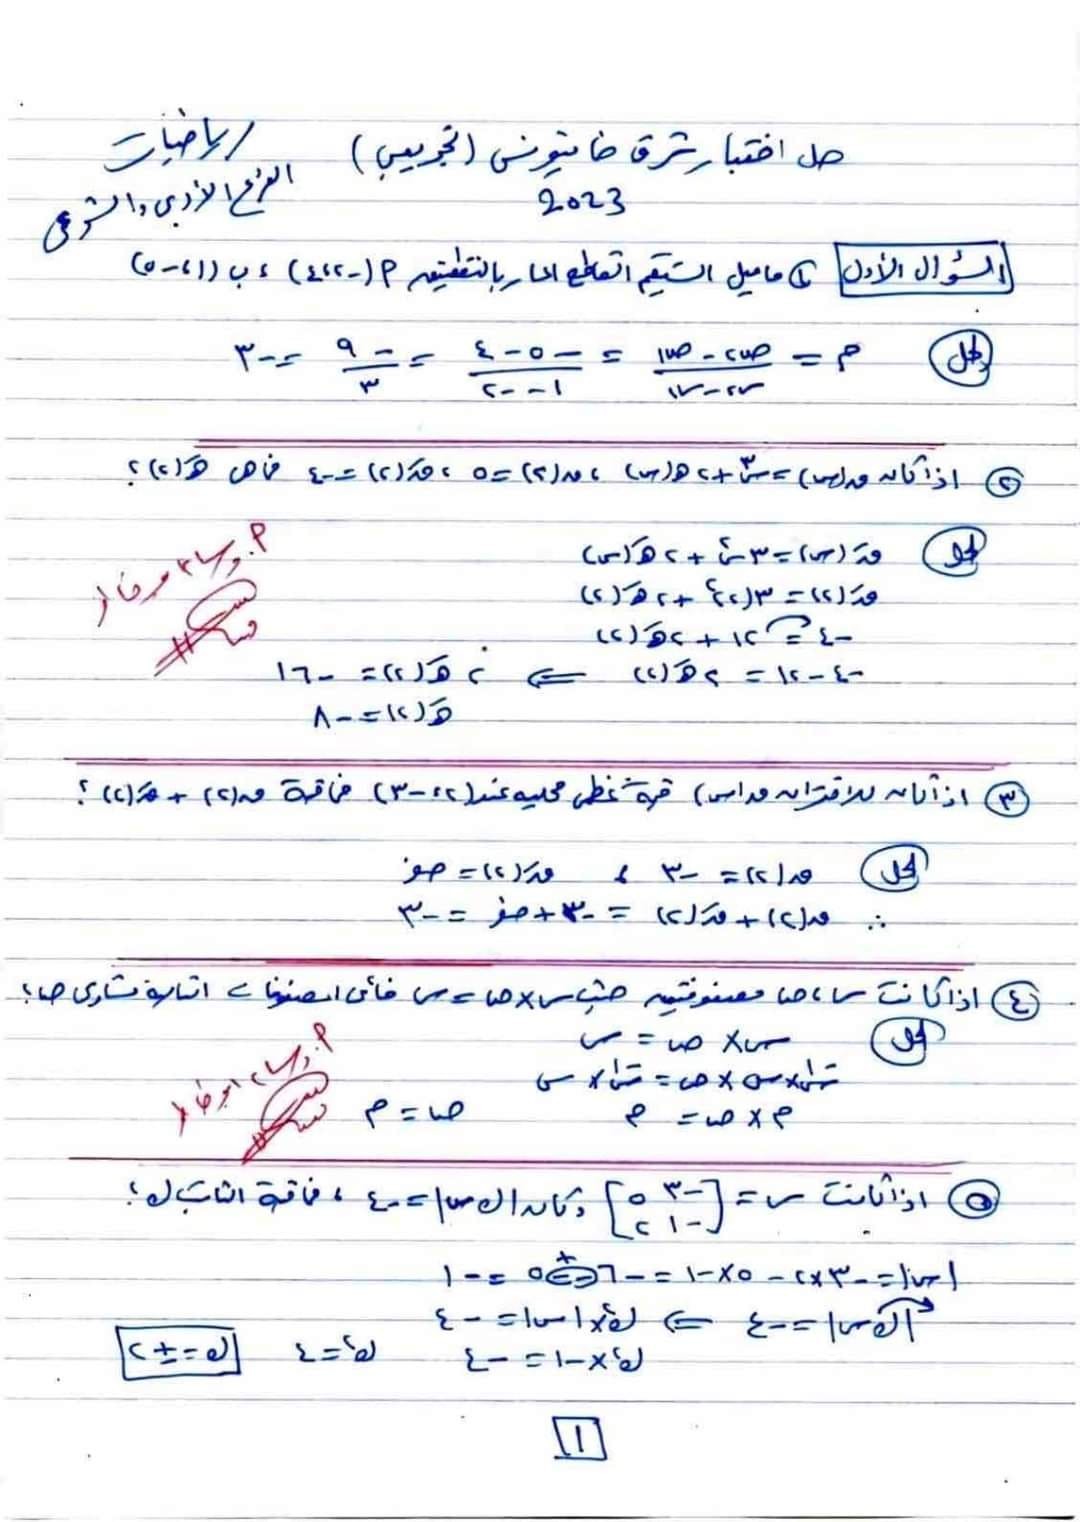 حل اختبار شرق خانيونس (تجريبي)
2023
رياضيات
الفرع الأدبي والشرعي
السؤال الأول ① ما ميل المستقيم القاطع المار بالنقطتين أ(-٢،٤) ، ب(١،-٥)
الحل م = ص٢ - ص١ / س٢ - س١ = -٥ - ٤ / ١ - -٢ = -٩ / ٣ = -٣
② اذا كان ق(س) = س٣ + ٢هـ(س) ، ق(٢) = ٥ ، قَ(٢) = -٤ فما هَـ(٢) ؟
الحل قَ(س) = ٣س٢ + ٢هَـ(س)
قَ(٢) = ٣(٢)٢ + ٢هَـ(٢)
-٤ = ١٢ + ٢هَـ(٢)
-٤ - ١٢ = ٢هَـ(٢) ⇐ ٢هَـ(٢) = -١٦
هَـ(٢) = -٨
③ اذا كان للاقتران ق(س) قيمة عظمى محلية عند (٢،-٣) فما قيمة ق(٢) + قَ(٢) ؟
الحل ق(٢) = -٣ ، قَ(٢) = صفر
∴ ق(٢) + قَ(٢) = -٣ + صفر = -٣
④ اذا كانت س ، ص مصفوفتين حيث س × ص = س فأي المصفوفات التالية تساوي ص ؟
الحل س × ص = س
س-١ × س × ص = س-١ × س
م × ص = م ص = م
⑤ اذا كانت س = [-٣ ٥
-١ ٢] وكان |ك س| = -٤ ، فما قيمة الثابت ك ؟
|س| = -٣×٢ - ٥×-١ = -٦ + ٥ = -١
|ك س| = -٤ ⇐ ك٢ × |س| = -٤
ك٢ × -١ = -٤ ك٢ = ٤ ك = ±٢
١